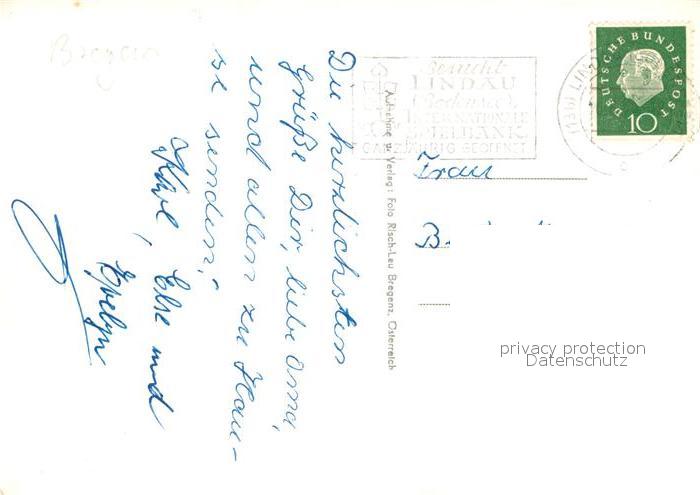 Bregenz
Die herzlichsten
Grüße Dir, liebe Oma,
und allen zu Hau-
se senden:
Karl, Else und
Evelyn
Aufnahme u. Verlag: Foto Risch-Lau Bregenz, Österreich
Besucht
LINDAU
(Bodensee)
INTERNATIONALE
SPIELBANK
GANZJÄHRIG GEÖFFNET
(13b) LIN
DEUTSCHE BUNDESPOST
10
Frau
B.
privacy protection
Datenschutz